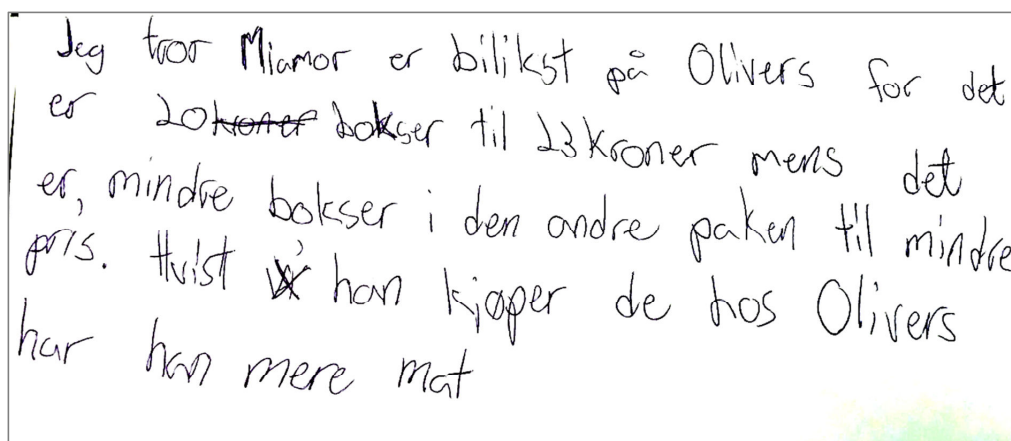 Jeg tror Miamor er bilikst på Olivers for det
er 20 kroner bokser til 23 kroner mens det
er, mindre bokser i den andre paken til mindre
pris. Hvist han kjøper de hos Olivers
har han mere mat